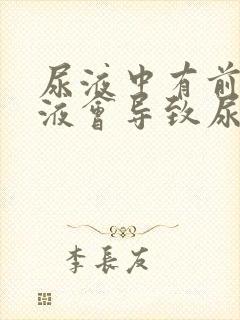 尿液中有前
液會导致尿
李長友